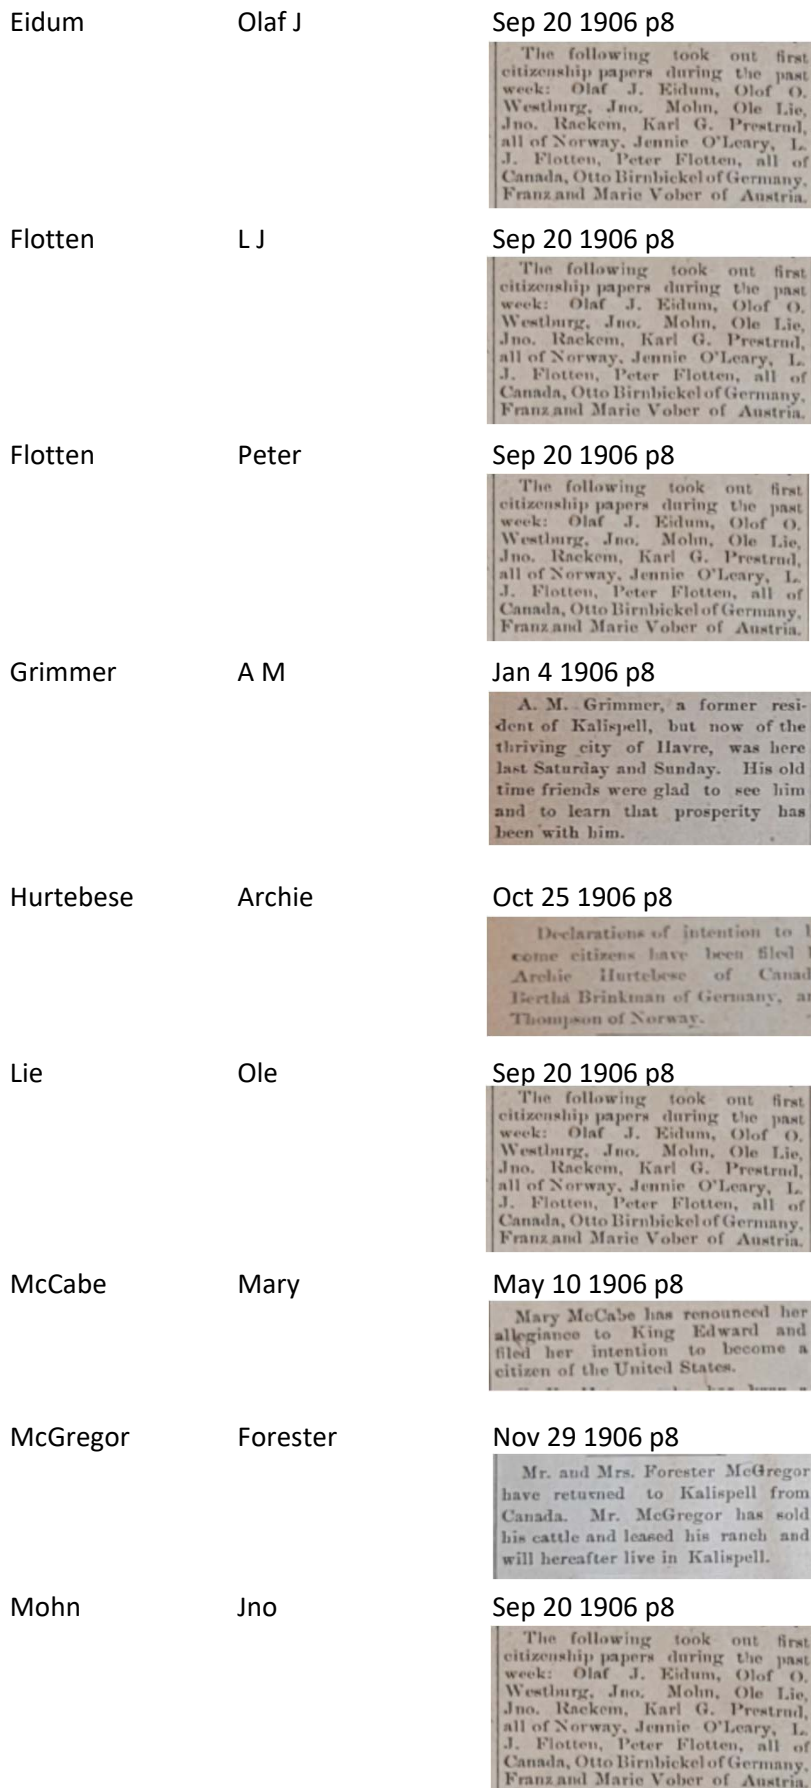 Eidum Olaf J Sep 20 1906 p8
The following took out first
citizenship papers during the past
week: Olaf J. Eidum, Olof O.
Westburg, Jno. Mohn, Ole Lie,
Jno. Rackem, Karl G. Prestrud,
all of Norway, Jennie O'Leary, L.
J. Flotten, Peter Flotten, all of
Canada, Otto Birnbickel of Germany,
Franz and Marie Vober of Austria.
Flotten L J Sep 20 1906 p8
The following took out first
citizenship papers during the past
week: Olaf J. Eidum, Olof O.
Westburg, Jno. Mohn, Ole Lie,
Jno. Rackem, Karl G. Prestrud,
all of Norway, Jennie O'Leary, L.
J. Flotten, Peter Flotten, all of
Canada, Otto Birnbickel of Germany,
Franz and Marie Vober of Austria.
Flotten Peter Sep 20 1906 p8
The following took out first
citizenship papers during the past
week: Olaf J. Eidum, Olof O.
Westburg, Jno. Mohn, Ole Lie,
Jno. Rackem, Karl G. Prestrud,
all of Norway, Jennie O'Leary, L.
J. Flotten, Peter Flotten, all of
Canada, Otto Birnbickel of Germany,
Franz and Marie Vober of Austria.
Grimmer A M Jan 4 1906 p8
A. M. Grimmer, a former resi-
dent of Kalispell, but now of the
thriving city of Havre, was here
last Saturday and Sunday. His old
time friends were glad to see him
and to learn that prosperity has
been with him.
Hurtebese Archie Oct 25 1906 p8
Declarations of intention to
come citizens have been filed
Archie Hurtebese of Canad
Bertha Brinkman of Germany, an
Thompson of Norway.
Lie Ole Sep 20 1906 p8
The following took out first
citizenship papers during the past
week: Olaf J. Eidum, Olof O.
Westburg, Jno. Mohn, Ole Lie,
Jno. Rackem, Karl G. Prestrud,
all of Norway, Jennie O'Leary, L.
J. Flotten, Peter Flotten, all of
Canada, Otto Birnbickel of Germany,
Franz and Marie Vober of Austria.
McCabe Mary May 10 1906 p8
Mary McCabe has renounced her
allegiance to King Edward and
filed her intention to become a
citizen of the United States.
McGregor Forester Nov 29 1906 p8
Mr. and Mrs. Forester McGregor
have returned to Kalispell from
Canada. Mr. McGregor has sold
his cattle and leased his ranch and
will hereafter live in Kalispell.
Mohn Jno Sep 20 1906 p8
The following took out first
citizenship papers during the past
week: Olaf J. Eidum, Olof O.
Westburg, Jno. Mohn, Ole Lie,
Jno. Rackem, Karl G. Prestrud,
all of Norway, Jennie O'Leary, L.
J. Flotten, Peter Flotten, all of
Canada, Otto Birnbickel of Germany,
Franz and Marie Vober of Austria.